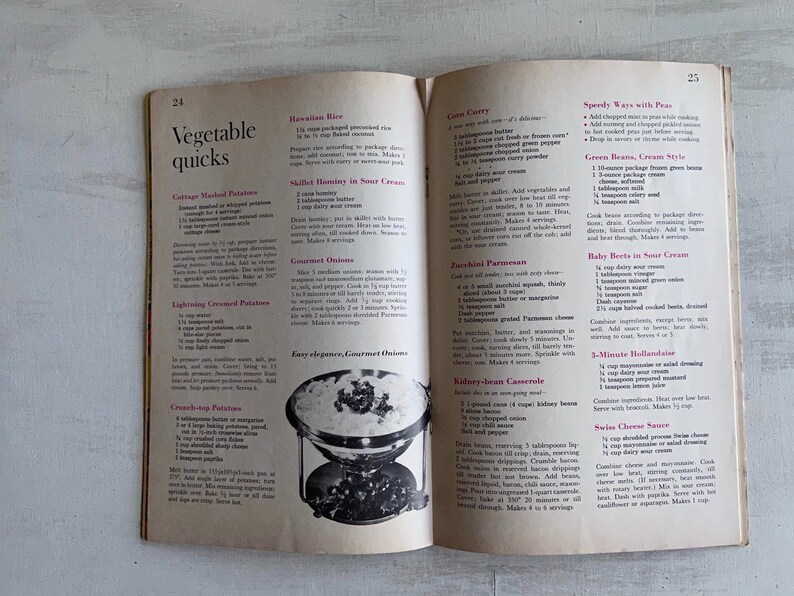 24
Vegetable
quicks
Cottage Mashed Potatoes
Instant mashed or whipped potatoes
(enough for 4 servings)
1½ tablespoons instant minced onion
1 cup large-curd cream-style
cottage cheese
Decreasing water by ½ cup, prepare instant
potatoes according to package directions,
but adding instant onion to boiling water before
adding potatoes. With fork, fold in cheese.
Turn into 1-quart casserole. Dot with butter;
sprinkle with paprika. Bake at 350°
30 minutes. Makes 4 or 5 servings.
Lightning Creamed Potatoes
½ cup water
1½ teaspoons salt
4 cups pared potatoes, cut in
bite-size pieces
¼ cup finely chopped onion
½ cup light cream
In pressure pan, combine water, salt, potatoes,
and onion. Cover; bring to 15
pounds pressure. Immediately remove from
heat and let pressure go down normally. Add
cream. Snip parsley over. Serves 6.
Crunch-top Potatoes
6 tablespoons butter or margarine
3 or 4 large baking potatoes, pared,
cut in ½-inch crosswise slices
¾ cup crushed corn flakes
1 cup shredded sharp cheese
1 teaspoon salt
1 teaspoon paprika
Melt butter in 15½x10½x1-inch pan at
375°. Add single layer of potatoes; turn
once in butter. Mix remaining ingredients;
sprinkle over. Bake ½ hour or till done
and tops are crisp. Serve hot.
Hawaiian Rice
1⅓ cups packaged precooked rice
⅓ to ½ cup flaked coconut
Prepare rice according to package directions;
add coconut; toss to mix. Makes 3
cups. Serve with curry or sweet-sour pork.
Skillet Hominy in Sour Cream
2 cans hominy
2 tablespoons butter
1 cup dairy sour cream
Drain hominy; put in skillet with butter.
Cover with sour cream. Heat on low heat,
stirring often, till cooked down. Season to
taste. Makes 8 servings.
Gourmet Onions
Slice 5 medium onions; season with ½
teaspoon each monosodium glutamate, sugar,
salt, and pepper. Cook in ⅓ cup butter
5 to 8 minutes or till barely tender, stirring
to separate rings. Add ½ cup cooking
sherry; cook quickly 2 or 3 minutes. Sprinkle
with 2 tablespoons shredded Parmesan
cheese. Makes 6 servings.
Easy elegance, Gourmet Onions
25
Corn Curry
A new way with corn—it's delicious—
3 tablespoons butter
1½ to 2 cups cut fresh or frozen corn*
2 tablespoons chopped green pepper
2 tablespoons chopped onion
¼ to ½ teaspoon curry powder
½ cup dairy sour cream
Salt and pepper
Melt butter in skillet. Add vegetables and
curry. Cover; cook over low heat till vegetables
are just tender, 8 to 10 minutes.
Stir in sour cream; season to taste. Heat,
stirring constantly. Makes 4 servings.
*Or, use drained canned whole-kernel
corn, or leftover corn cut off the cob; add
with the sour cream.
Zucchini Parmesan
Cook just till tender; toss with zesty cheese—
4 or 5 small zucchini squash, thinly
sliced (about 3 cups)
2 tablespoons butter or margarine
½ teaspoon salt
Dash pepper
2 tablespoons grated Parmesan cheese
Put zucchini, butter, and seasonings in
skillet. Cover; cook slowly 5 minutes. Uncover;
cook, turning slices, till barely tender,
about 5 minutes more. Sprinkle with
cheese; toss. Makes 4 servings.
Kidney-bean Casserole
Include this in an oven-going meal—
2 1-pound cans (4 cups) kidney beans
8 slices bacon
½ cup chopped onion
¼ cup chili sauce
Salt and pepper
Drain beans, reserving 3 tablespoons liquid.
Cook bacon till crisp; drain, reserving
2 tablespoons drippings. Crumble bacon.
Cook onion in reserved bacon drippings
till tender but not brown. Add beans,
reserved liquid, bacon, chili sauce, seasonings.
Pour into ungreased 1-quart casserole.
Cover; bake at 350° 20 minutes or till
heated through. Makes 4 to 6 servings.
Speedy Ways with Peas
• Add chopped mint to peas while cooking.
• Add nutmeg and chopped pickled onions
to hot cooked peas just before serving.
• Drop in savory or thyme while cooking.
Green Beans, Cream Style
1 10-ounce package frozen green beans
1 3-ounce package cream
cheese, softened
1 tablespoon milk
¾ teaspoon celery seed
¼ teaspoon salt
Cook beans according to package directions;
drain. Combine remaining ingredients;
blend thoroughly. Add to beans
and heat through. Makes 4 servings.
Baby Beets in Sour Cream
¼ cup dairy sour cream
1 tablespoon vinegar
1 teaspoon minced green onion
¾ teaspoon sugar
½ teaspoon salt
Dash cayenne
2½ cups halved cooked beets, drained
Combine ingredients, except beets; mix
well. Add sauce to beets; heat slowly,
stirring to coat. Serves 4 or 5.
3-Minute Hollandaise
¼ cup mayonnaise or salad dressing
¼ cup dairy sour cream
½ teaspoon prepared mustard
1 teaspoon lemon juice
Combine ingredients. Heat over low heat.
Serve with broccoli. Makes ½ cup.
Swiss Cheese Sauce
½ cup shredded process Swiss cheese
¼ cup mayonnaise or salad dressing
½ cup dairy sour cream
Combine cheese and mayonnaise. Cook
over low heat, stirring constantly, till
cheese melts. (If necessary, beat smooth
with rotary beater.) Mix in sour cream;
heat. Dash with paprika. Serve with hot
cauliflower or asparagus. Makes 1 cup.